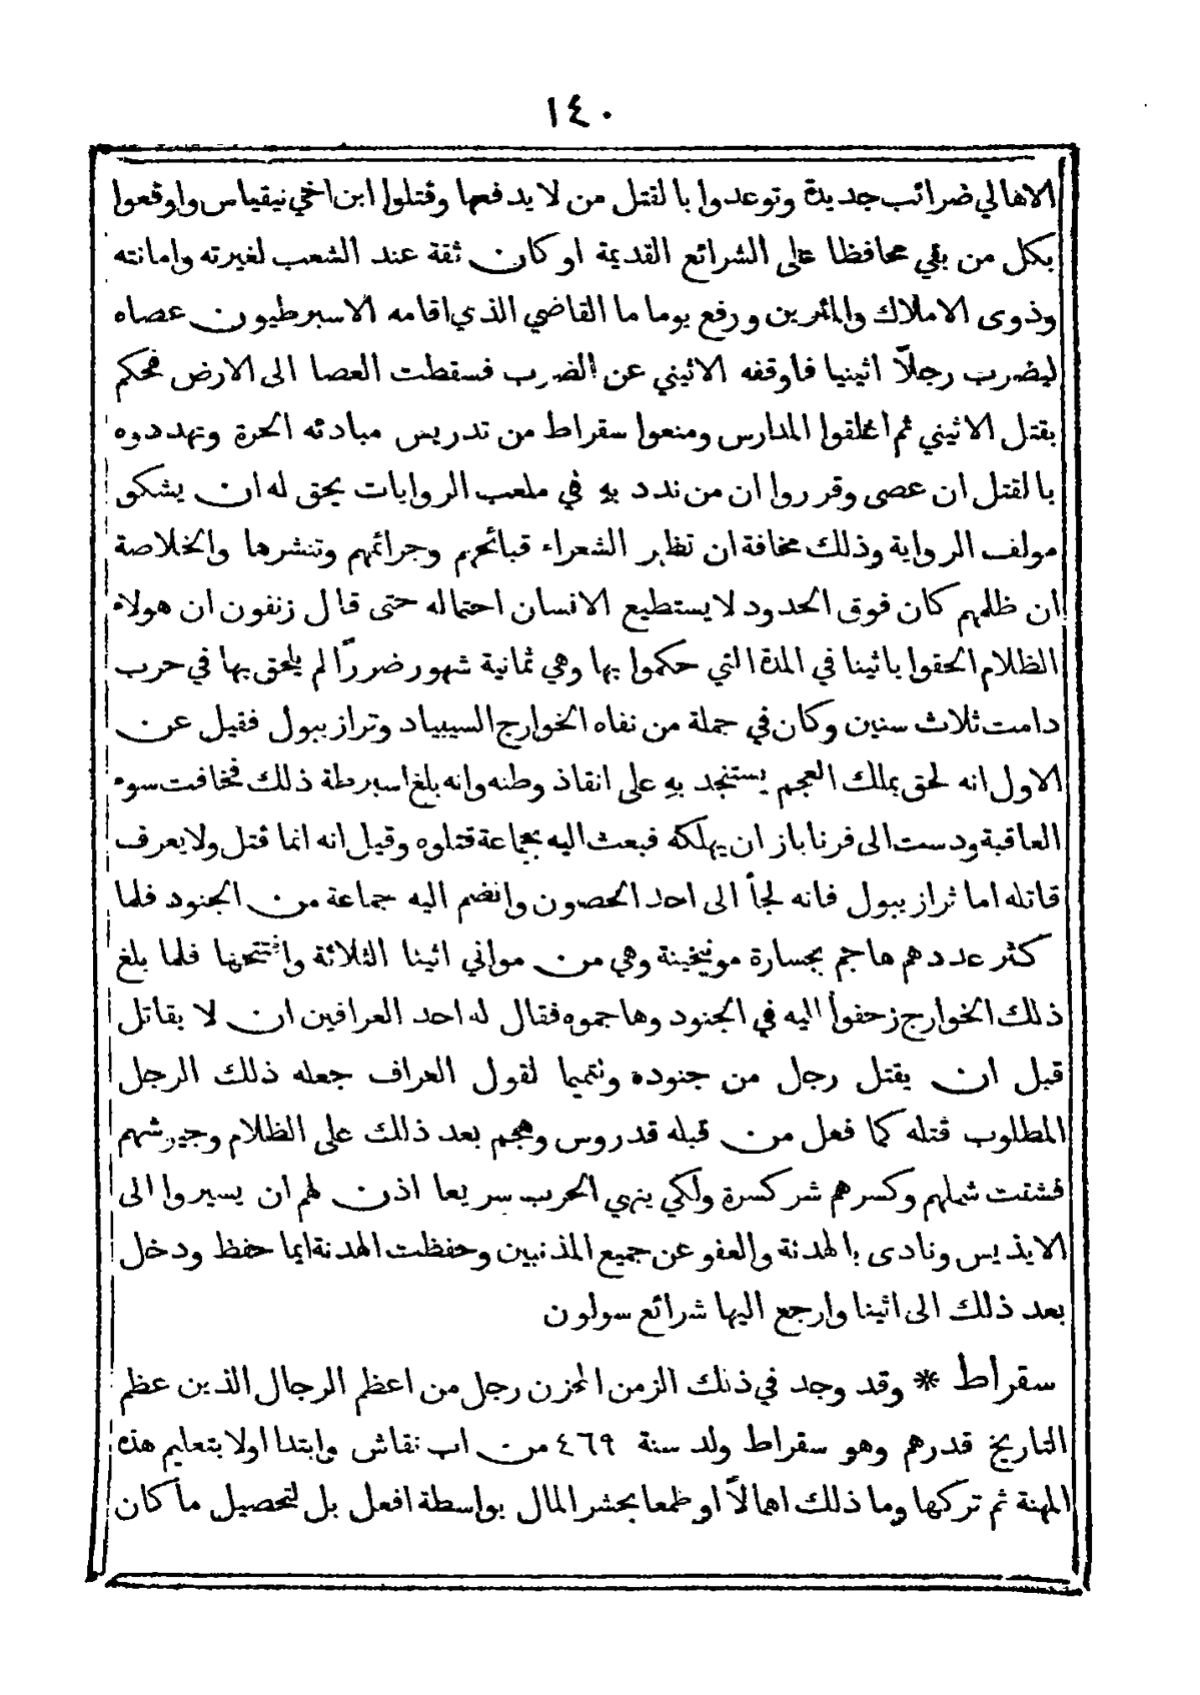 ١٤٠
الاهالي ضرائب جديدة وتوعدوا بالقتل من لا يدفعها وقتلوا ابن اخي نيقياس واوقعوا
بكل من بقي محافظا على الشرائع القديمة او كان ثقة عند الشعب لغيرته وامانته
وذوى الاملاك والمثرين ورفع يوما ما القاضي الذي اقامه الاسبرطيون عصاه
ليضرب رجلاً اثينيا فاوقفه الاثيني عن الضرب فسقطت العصا الى الارض فحكم
بقتل الاثيني ثم اغلقوا المدارس ومنعوا سقراط من تدريس مبادئه الحرة وتهددوه
بالقتل ان عصى وقرروا ان من ندد به في ملعب الروايات يحق له ان يشكو
مولف الرواية وذلك مخافة ان تظهر الشعراء قبائحهم وجرائمهم وتنشرها والخلاصة
ان ظلمهم كان فوق الحدود لا يستطيع الانسان احتماله حتى قال زنفون ان هولاء
الظلام الحقوا باثينا في المدة التي حكموا بها وهي ثمانية شهور ضرراً لم يلحق بها في حرب
دامت ثلاث سنين وكان في جملة من نفاه الخوارج السيبياد وترازيبول فقيل عن
الاول انه لحق بملك العجم يستنجد به على انقاذ وطنه وانه بلغ اسبرطة ذلك فخافت سوء
العاقبة ودست الى فرناباز ان يهلكه فبعث اليه بجماعة قتلوه وقيل انه انما قتل ولا يعرف
قاتله اما ترازيبول فانه لجأ الى احد الحصون وانضم اليه جماعة من الجنود فلما
كثر عددهم هاجم بجسارة مونيخينة وهي من مواني اثينا الثلاثة وافتتحها فلما بلغ
ذلك الخوارج زحفوا اليه في الجنود وهاجموه فقال له احد العرافين ان لا يقاتل
قبل ان يقتل رجل من جنوده وتتميا لقول العراف جعله ذلك الرجل
المطلوب قتله كما فعل من قبله قدروس وهجم بعد ذلك على الظلام وجيرشهم
فشتت شملهم وكسرهم شر كسرة ولكي ينهي الحرب سريعا اذن لهم ان يسيروا الى
الايذيس ونادى بالهدنة والعفو عن جميع المذنبين وحفظت الهدنة ايما حفظ ودخل
بعد ذلك الى اثينا وارجع اليها شرائع سولون
سقراط * وقد وجد في ذلك الزمن المحزن رجل من اعظم الرجال الذين عظم
التاريخ قدرهم وهو سقراط ولد سنة ٤٦٩ من اب نقاش وابتدا اولا بتعليم هذه
المهنة ثم تركها وما ذلك اهمالاً او طمعا بحشر المال بواسطة افعل بل لتحصيل ما كان